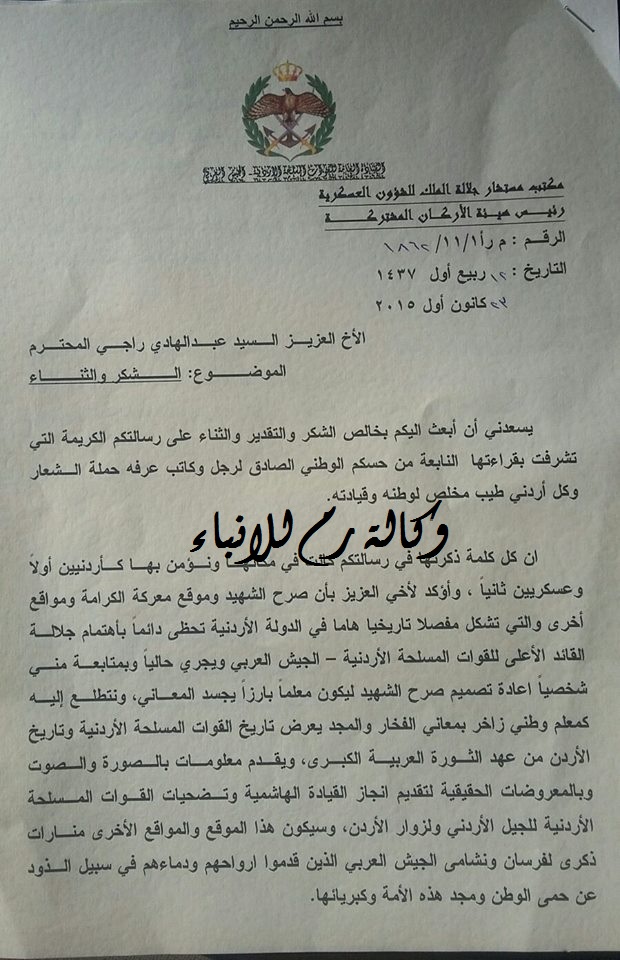 بسم الله الرحمن الرحيم
القيادة العامة للقوات المسلحة الأردنية - الجيش العربي
مكتب مستشار جلالة الملك للشؤون العسكرية
رئيس هيئة الأركان المشتركة
الرقم : م ر أ/١/ ١١/ ١٨٦٢
التاريخ : ١٢ ربيع أول ١٤٣٧
٢٣ كانون أول ٢٠١٥
الأخ العزيز السيد عبدالهادي راجي المحترم
الموضوع: الشكر والثناء
يسعدني أن أبعث اليكم بخالص الشكر والتقدير والثناء على رسالتكم الكريمة التي
تشرفت بقراءتها النابعة من حسكم الوطني الصادق لرجل وكاتب عرفه حملة الشعار
وكل أردني طيب مخلص لوطنه وقيادته.
وكالة رم للانباء
ان كل كلمة ذكرتها في رسالتكم كانت في مكانها ونؤمن بها كأردنيين أولاً
وعسكريين ثانياً ، وأؤكد لأخي العزيز بأن صرح الشهيد وموقع معركة الكرامة ومواقع
أخرى والتي تشكل مفصلا تاريخيا هاما في الدولة الأردنية تحظى دائماً بأهتمام جلالة
القائد الأعلى للقوات المسلحة الأردنية – الجيش العربي ويجري حالياً وبمتابعة مني
شخصياً اعادة تصميم صرح الشهيد ليكون معلماً بارزاً يجسد المعاني، ونتطلع إليه
كمعلم وطني زاخر بمعاني الفخار والمجد يعرض تاريخ القوات المسلحة الأردنية وتاريخ
الأردن من عهد الثورة العربية الكبرى، ويقدم معلومات بالصورة والصوت
وبالمعروضات الحقيقية لتقديم انجاز القيادة الهاشمية وتضحيات القوات المسلحة
الأردنية للجيل الأردني ولزوار الأردن، وسيكون هذا الموقع والمواقع الأخرى منارات
ذكرى لفرسان ونشامى الجيش العربي الذين قدموا ارواحهم ودماءهم في سبيل الذود
عن حمى الوطن ومجد هذه الأمة وكبريائها.